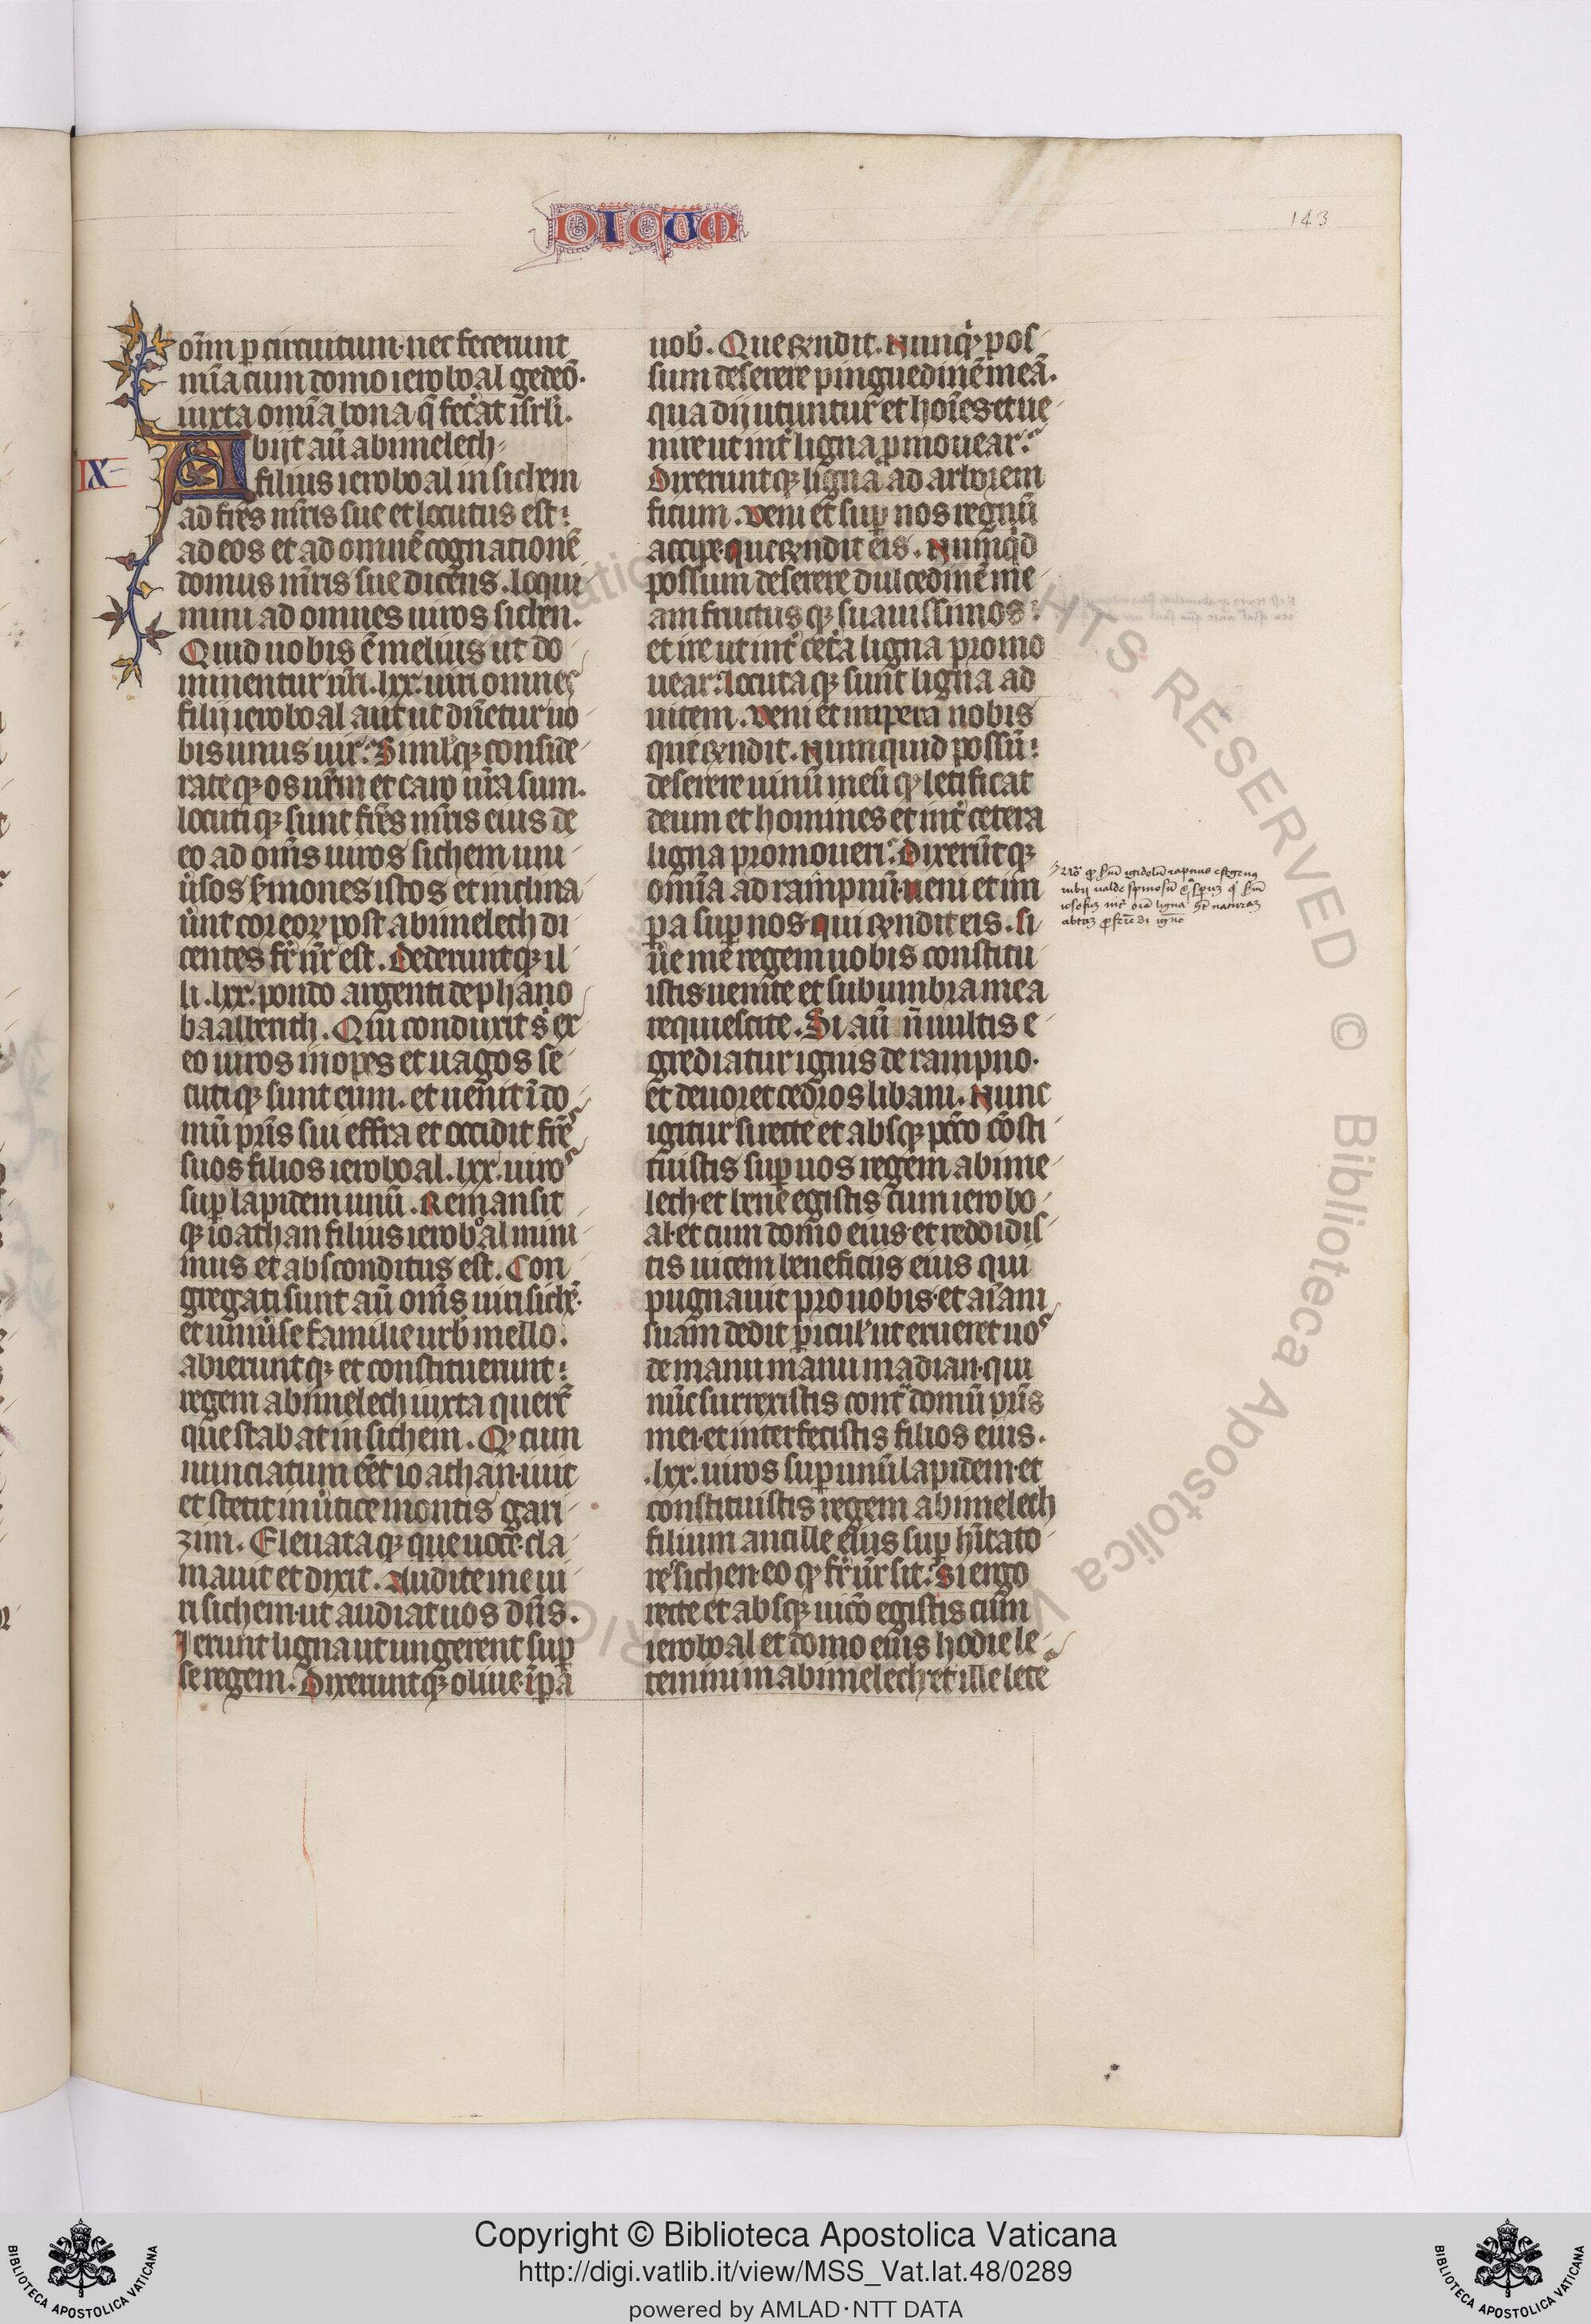 DICUM
143
oīm p circuitum· nec fecerunt
mīa cum domo ieroboal gedeō·
iuxta omīa bona q̄ fec̄at isrl̄i·
IX
Abijt aū abimelech
filius ieroboal in sichem
ad frēs mr̄is sue et locutus est
ad eos et ad omnē cognationē
domus mr̄is sue dicens. loqui
mini ad omnes uiros sichen.
Quid uobis ē melius ut do
minentur ur̄i .lxx. uiri omnes
filij ieroboal aut ut dn̄etur uo
bis unus uir. Simlꝰqꝫ conside
rate qꝫ os ur̄m et caro ur̄a sum.
locutiqꝫ sunt frēs mr̄is eius de
eo ad oms̄ uiros sichem uni
ūsos s̄mones istos et inclina
ūnt cor eoꝝ post abimelech di
centes fr̄ nr̄ est. Dederuntqꝫ il
li .lxx. pondo argenti de phano
baalbrith. Qui conduxit s̄ ex
eo uiros inopes et uagos se
cutiqꝫ sunt eum. et uenit ī do
mū pr̄is sui effra et occidit fr̄es
suos filios ieroboal .lxx. uiros
suꝑ lapidem unū. Remansit
qꝫ ioathan filius ieroboal mini
mus et absconditus est. Con
gregati sunt aū oms̄ uiri sichē·
et uniūse familie urb̄ mello.
abieruntqꝫ et constituerunt
regem abimelech iuxta querc̄
que stabat in sichem. Qꝫ cum
nunciatum eēt ioathan· iuit
et stetit in ūtice montis gari
zim. Eleuataqꝫ que uoce· cla
mauit et dixit. Audite me ui
ri sichem· ut audiat uos dn̄s.
Ierunt ligna ut ungerent suꝑ
se regem. Dixeruntqꝫ oliue· īpa
nob̄. Que r̄ndit. Nunqꝫ pos
sum deserere pinguedinē meā.
qua dij utuntur et hoīes· et ue
nire ut int̄ ligna ꝑmouear.
Dixeruntqꝫ ligna ad arborem
ficum. Veni et suꝑ nos regnū
accipe· que r̄ndit eis. Numqd
possum deserere dulcedinē me
am fructusqꝫ suauissimos
et ire ut int̄ cet̄a ligna promo
uear. Locutaqꝫ sunt ligna ad
uitem. Veni et impera nobis
que r̄ndit. Numquid possū
deserere uinū meū qꝫ letificat
deum et homines et int̄ cetera
ligna promoueri. Dixerūtqꝫ
omīa ad rampnū· ueni et im
ꝑa suꝑ nos· qui r̄ndit eis. si
ūe me regem uobis constitu
istis uenite et sub umbra mea
requiescite. Si aū n̄ uultis e
grediatur ignis de rampno·
et deuoret cedros libani. Nunc
igitur si recte et absqꝫ pcc̄o cōsti
tuistis suꝑ uos regem abime
lech· et bene egistis cum ierobo
al· et cum domo eius· et reddidis
tis uicem beneficijs eius qui
pugnauit pro uobis· et aīam
suam dedit ꝑiculꝰ ut erueret uos
de manu manu madian· qui
nūc surrexistis cont̄ domū pr̄is
mei· et interfecistis filios eius·
.lxx. uiros suꝑ unū lapidem· et
constituistis regem abimelech
filium ancille eius suꝑ hītato
res sichen· eo qꝫ fr̄ ur̄ sit. Si ergo
recte et absqꝫ uicō egistis cum
ieroboal et domo eius hodie le
temini in abimelech et ille lete
RIGHTS RESERVED © Biblioteca Apostolica Vaticana
Copyright © Biblioteca Apostolica Vaticana
http://digi.vatlib.it/view/MSS_Vat.lat.48/0289
powered by AMLAD·NTT DATA
BIBLIOTECA APOSTOLICA VATICANA
BIBLIOTECA APOSTOLICA VATICANA